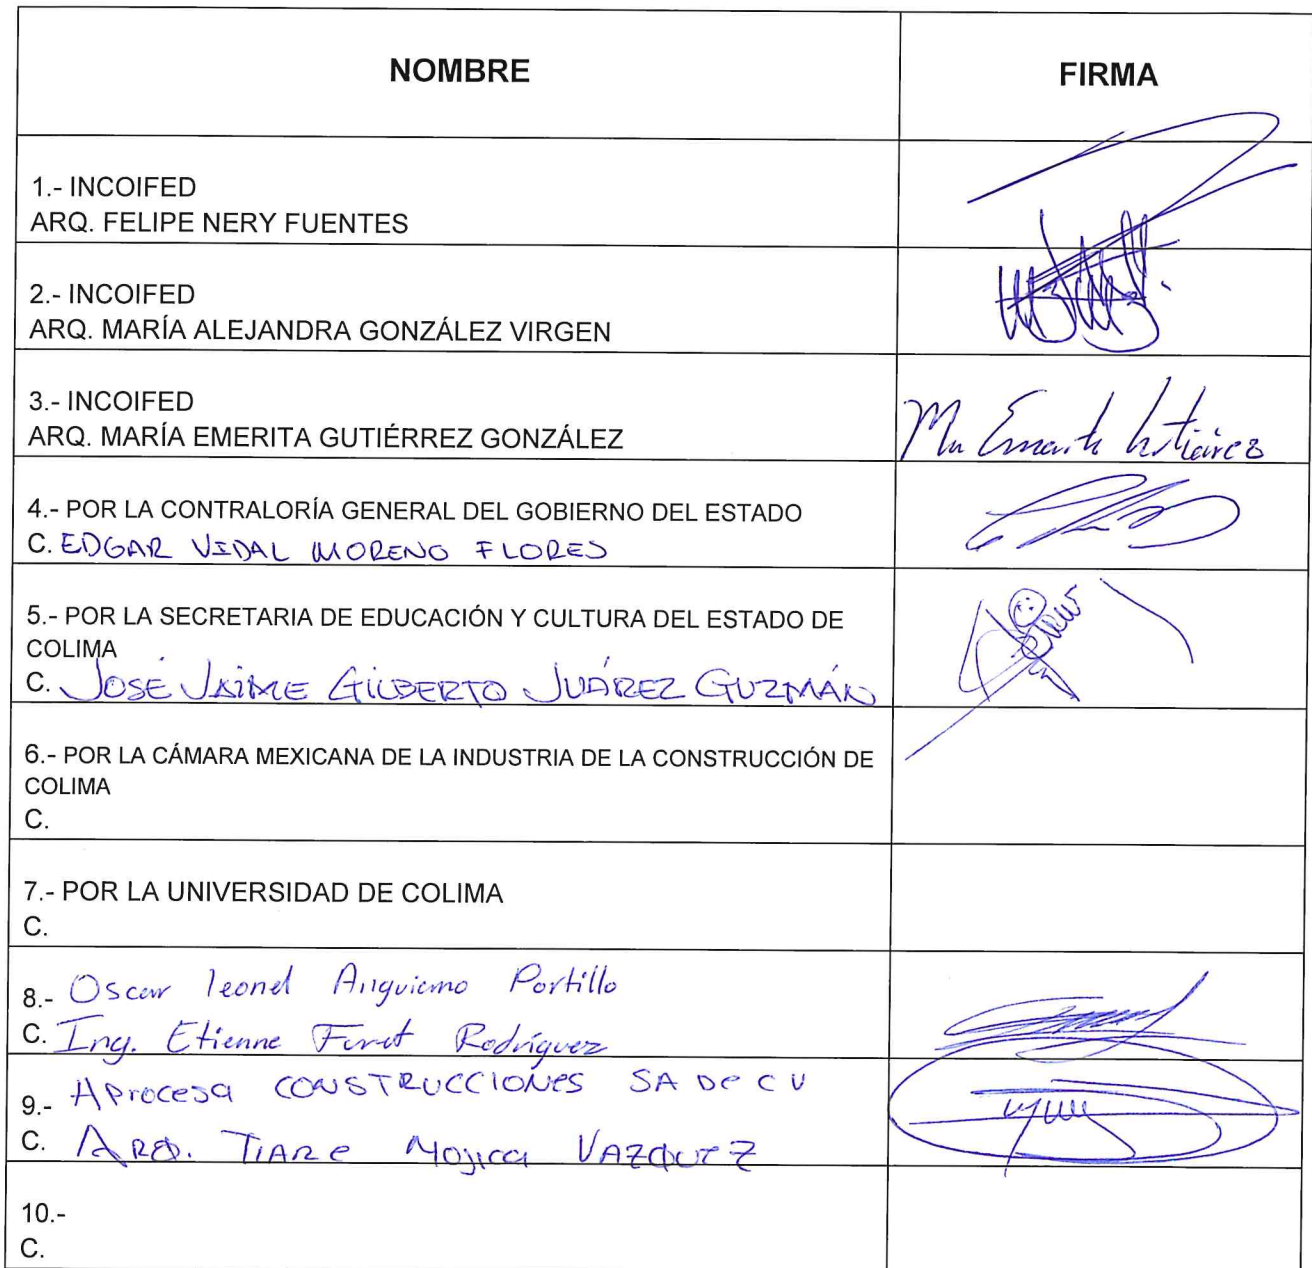 NOMBRE
FIRMA
1.- INCOIFED
ARQ. FELIPE NERY FUENTES
2.- INCOIFED
ARQ. MARÍA ALEJANDRA GONZÁLEZ VIRGEN
3.- INCOIFED
ARQ. MARÍA EMERITA GUTIÉRREZ GONZÁLEZ
4.- POR LA CONTRALORÍA GENERAL DEL GOBIERNO DEL ESTADO
C. EDGAR VIDAL MORENO FLORES
5.- POR LA SECRETARIA DE EDUCACIÓN Y CULTURA DEL ESTADO DE
COLIMA
C. JOSÉ JAIME GILBERTO JUÁREZ GUZMÁN
6.- POR LA CÁMARA MEXICANA DE LA INDUSTRIA DE LA CONSTRUCCIÓN DE
COLIMA
C.
7.- POR LA UNIVERSIDAD DE COLIMA
C.
8.- Oscar leonel Anguiano Portillo
C. Ing. Etienne Rodríguez
9.- Aprocesa CONSTRUCCIONES SA De CV
C. ARQ. TIARE Mojica VAZQUEZ
10.-
C.